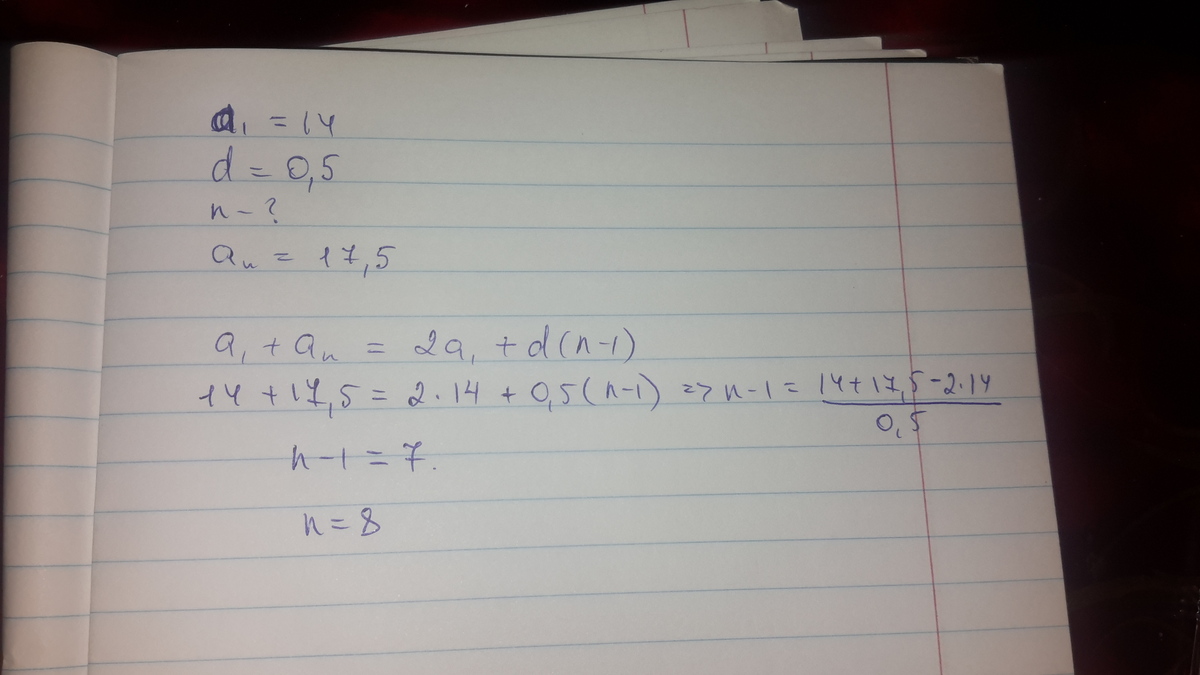 a₁ = 14
d = 0,5
n - ?
aₙ = 17,5
a₁ + aₙ = 2a₁ + d(n-1)
14 + 17,5 = 2·14 + 0,5(n-1) => n-1 = (14+17,5-2·14)/0,5
n-1 = 7.
n = 8